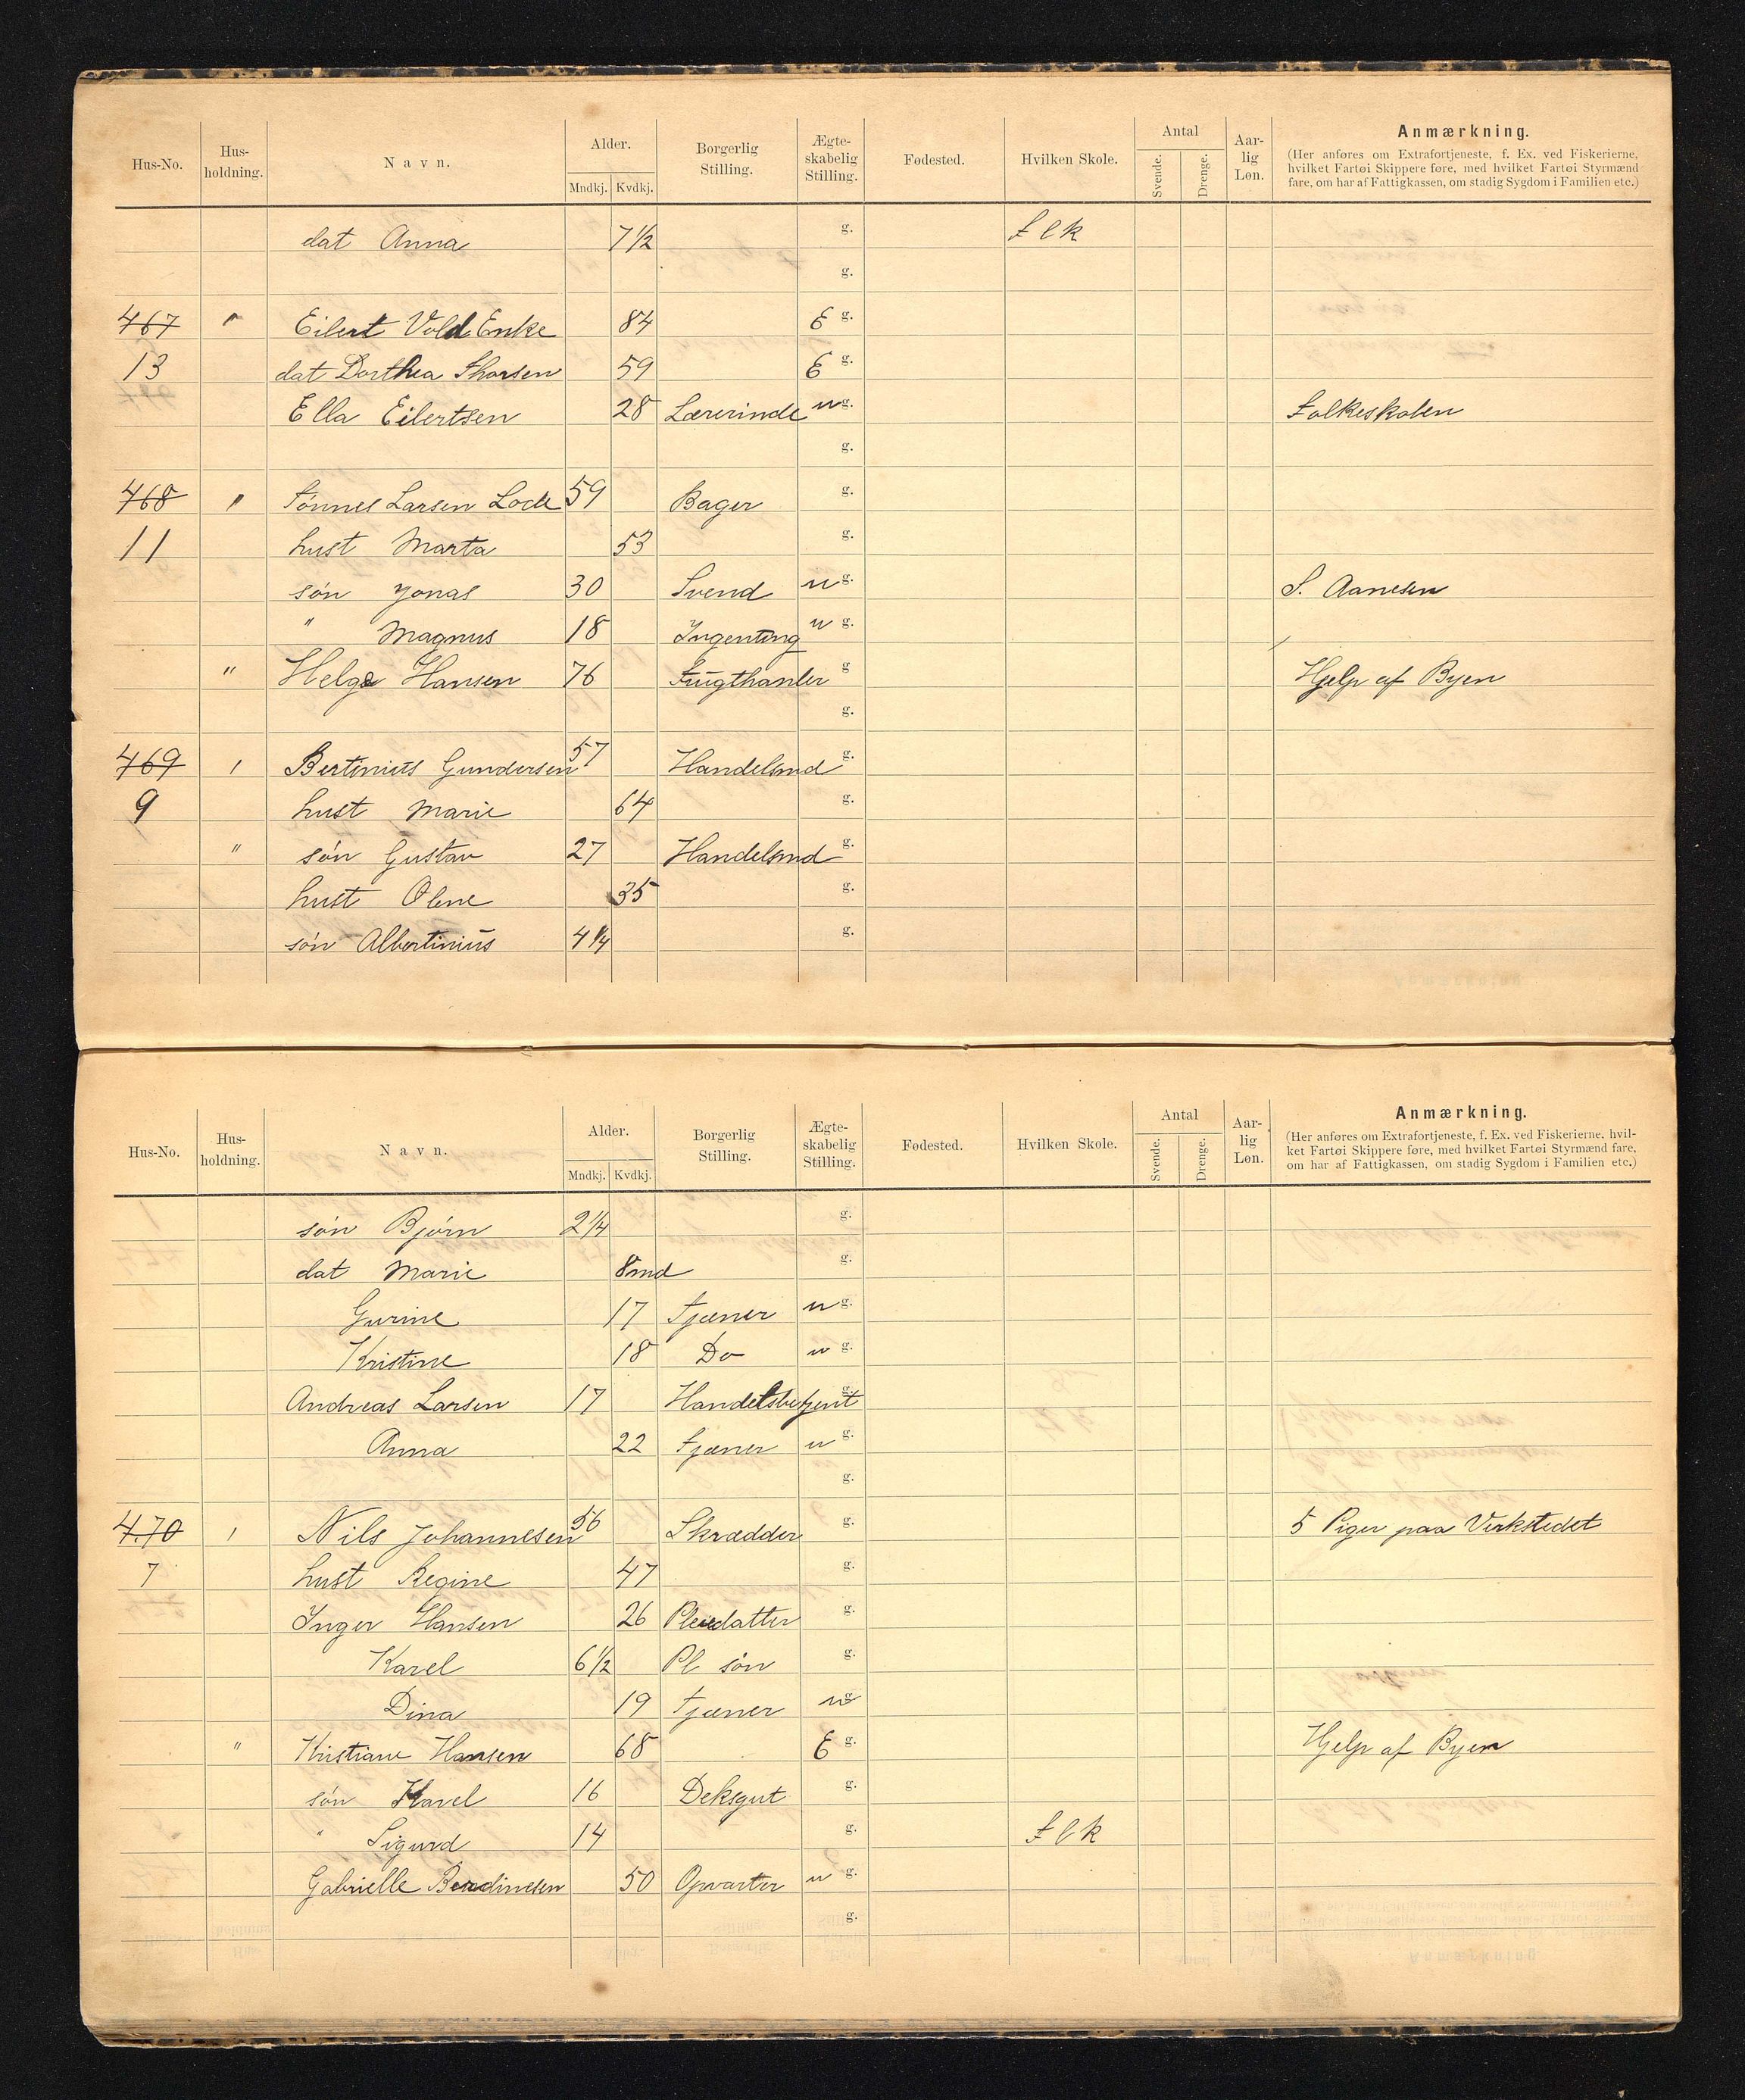 Hus-No. Hus-holdning. Navn. Alder. Mndkj. Kvdkj. Borgerlig Stilling. Ægte-skabelig Stilling. Fødested. Hvilken Skole. Antal Svende. Drenge. Aar-lig Løn. Anmærkning.
(Her anføres om Extrafortjeneste, f. Ex. ved Fiskerierne,
hvilket Fartøi Skippere føre, med hvilket Fartøi Styrmænd
fare, om har af Fattigkassen, om stadig Sygdom i Familien etc.)
dat Anna 7 1/2 g. flk
g.
467 " Eilert Vold Enke 84 E g.
13 dat Dorthea Thorsen 59 E g.
Ella Eilertsen 28 Lærerinde u g. Folkeskolen
g.
468 " Tønnes Larsen Lode 59 Bager g.
11 hust Marta 53 g.
søn Jonas 30 Svend u g. S. Aanesen
" Magnus 18 Ingenting u g.
" Helge Hansen 76 Frugthanler g Hjelp af Byen
g.
469 1 Bertinius Gundersen 57 Handelsmd g.
9 hust Marie 64 g.
" søn Gustav 27 Handelsmd g.
hust Olene 35 g.
søn Albertinius 4 1/4 g.
Hus-No. Hus-holdning. Navn. Alder. Mndkj. Kvdkj. Borgerlig Stilling. Ægte-skabelig Stilling. Fødested. Hvilken Skole. Antal Svende. Drenge. Aar-lig Løn. Anmærkning.
(Her anføres om Extrafortjeneste, f. Ex. ved Fiskerierne, hvil-
ket Fartøi Skippere føre, med hvilket Fartøi Styrmænd fare,
om har af Fattigkassen, om stadig Sygdom i Familien etc.)
søn Bjørn 2 1/4 g.
dat Marie 8md g.
Gurine 17 tjener u g.
Kristine 18 Do u g.
Andreas Larsen 17 Handelsbetjent g.
Anna 22 tjener u g.
g.
470 1 Nils Johannesen 56 Skrædder g. 5 Piger paa Verkstedet
7 hust Regine 47 g.
Inger Hansen 26 Pleiedatter g.
Karel 6 1/2 Pl søn g.
Dina 19 tjener u g.
" Kristiane Hansen 68 E g. Hjelp af Byen
søn Karel 16 Deksgut g.
" Sigurd 14 g. flk
Gabrielle Berdinesen 50 Opvarter u g.
g.